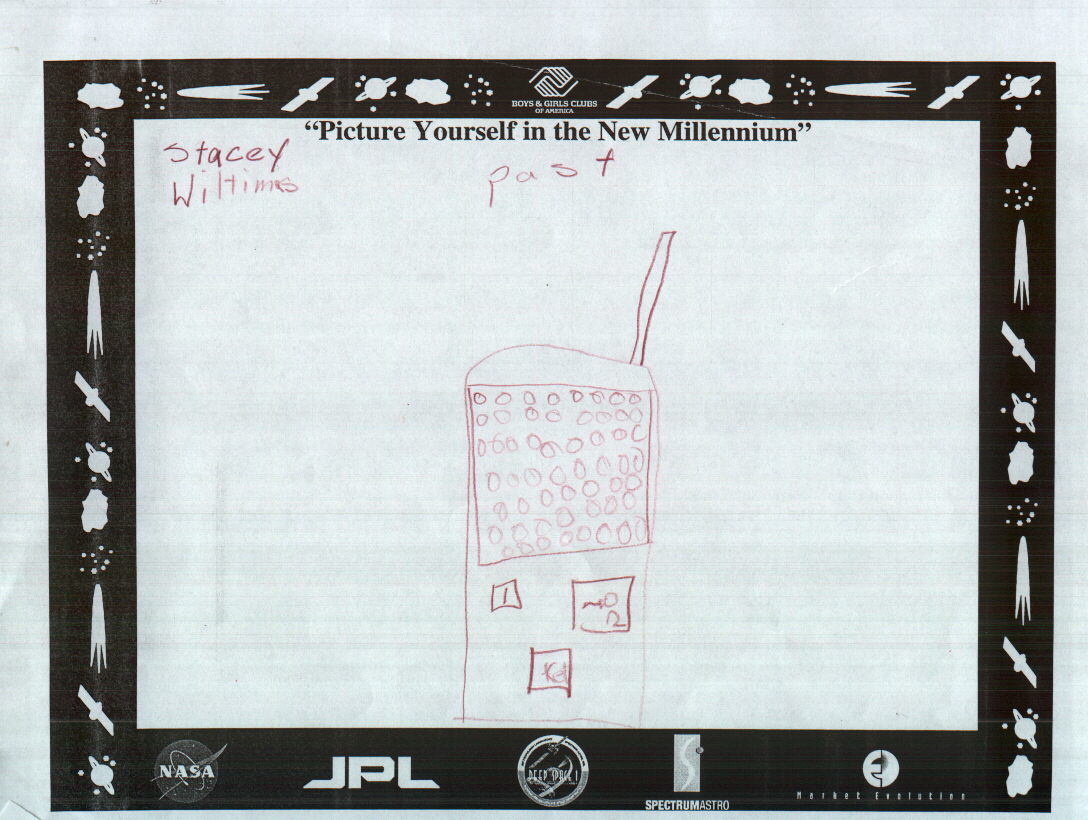 BOYS & GIRLS CLUBS
OF AMERICA
“Picture Yourself in the New Millennium”
Stacey
Wiltimes
past
1
NASA
JPL
DEEP SPACE 1
SPECTRUMASTRO
Market Evolution